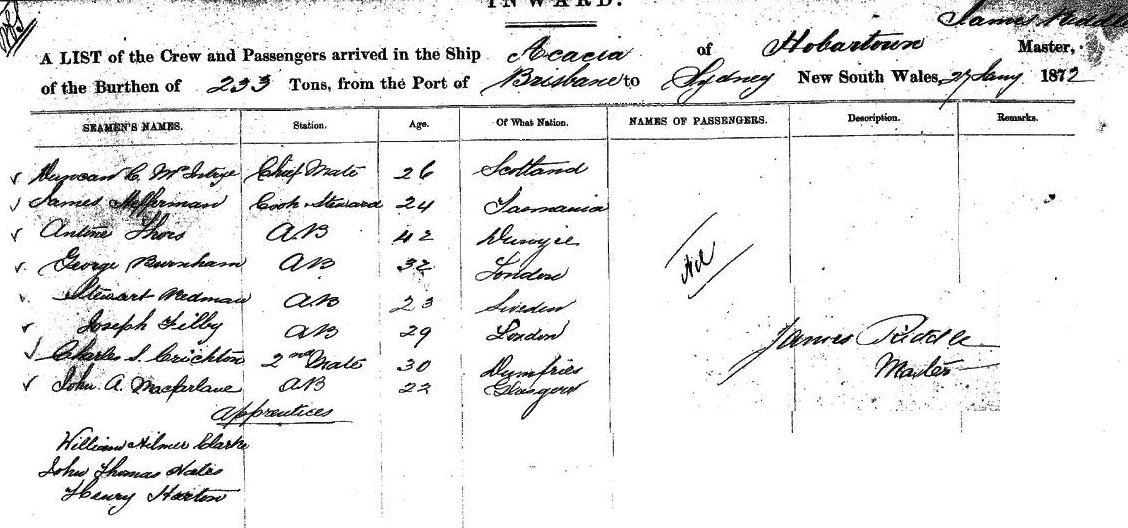 INWARD.
James Riddle
A LIST of the Crew and Passengers arrived in the Ship Acacia of Hobartown Master,
of the Burthen of 233 Tons, from the Port of Brisbane to Sydney New South Wales, 27 Jany 1872
SEAMEN'S NAMES. Station. Age. Of What Nation. NAMES OF PASSENGERS. Description. Remarks.
Duncan C. McIntyre Chief Mate 26 Scotland
James Hefferman Cook Steward 24 Tasmania
Antine AB 42
George Burnham AB 32 London
Stewart Wedman AB 23 Sweden
Joseph Filby AB 29 London
Charles S. Crichton 2nd Mate 30 Dumfries
John A. Macfarlane AB 22 Glasgow
Nil
James Riddle
Master
Apprentices
William Hilmer Clarke
John Thomas
Henry Harton